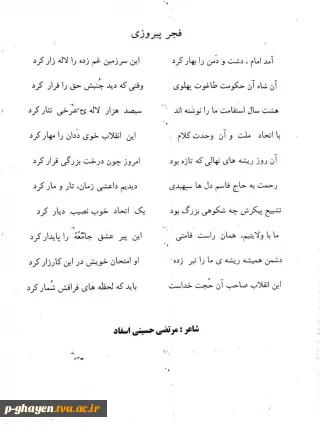 فجر پیروزی
آمد امام ، دشت و دَمن را بهار کرد این سرزمین غم زده را لاله زار کرد
آن شاه آن حکومت طاغوت پهلوی وقتی که دید جُنبش حق را فرار کرد
هشت سال استقامت ما را نوشته اند سیصد هزار لاله ی سرخی نثار کرد
با اتحاد ملت و آن وحدت کلام این انقلاب خوی دَدان را مهار کرد
آن روز ریشه های نهالی که تازه بود امروز چون درخت بزرگی قرار کرد
رحمت به حاج قاسم دل ها سپهبدی دیدیم داعشی زمان، تار و مار کرد
تشییع پیکرش چه شکوهی بزرگ بود یک اتحاد خوب نصیب دیار کرد
ما با ولایتیم، همان راست قامتی این پیر عشق جامعَهٔ را پایدار کرد
دشمن همیشه ریشه ی ما را تبر زده او امتحان خویش در این کارزار کرد
این انقلاب صاحب آن حُجت خداست باید که لحظه های فراقش شُمار کرد
شاعر : مرتضی حسینی اسفاد
p-ghayen.tvu.ac.ir